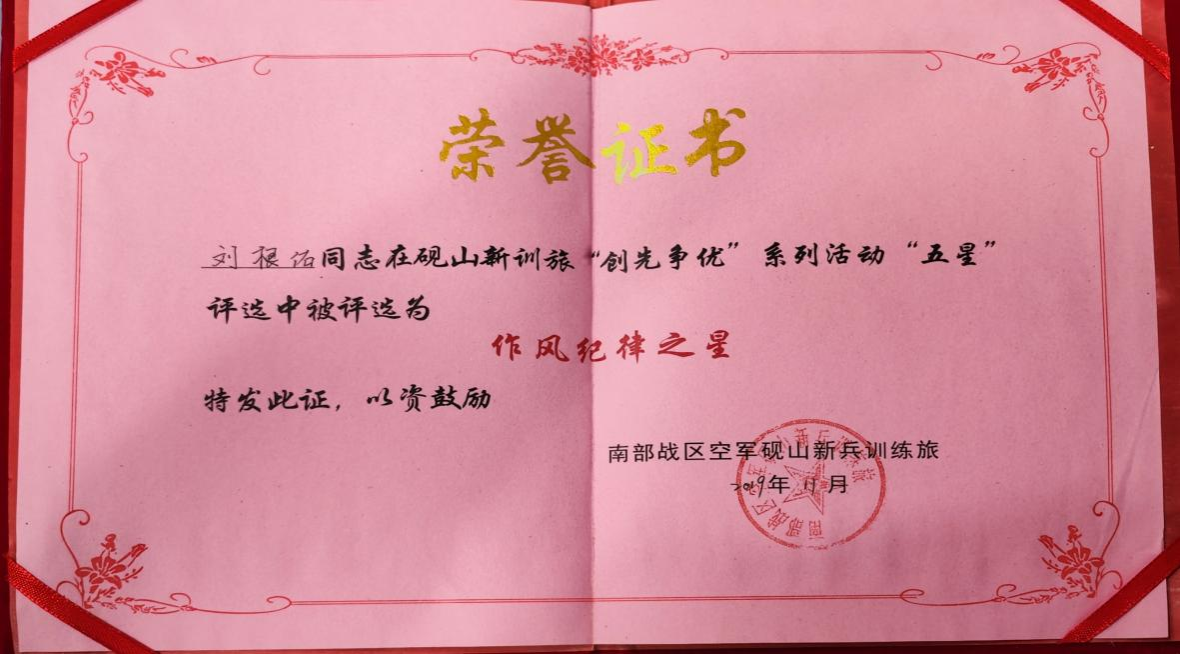 荣誉证书
刘根佑同志在砚山新训旅“创先争优”系列活动“五星”
评选中被评选为
作风纪律之星
特发此证，以资鼓励
南部战区空军砚山新兵训练旅
2019年11月
南部战区空军砚山新兵训练旅